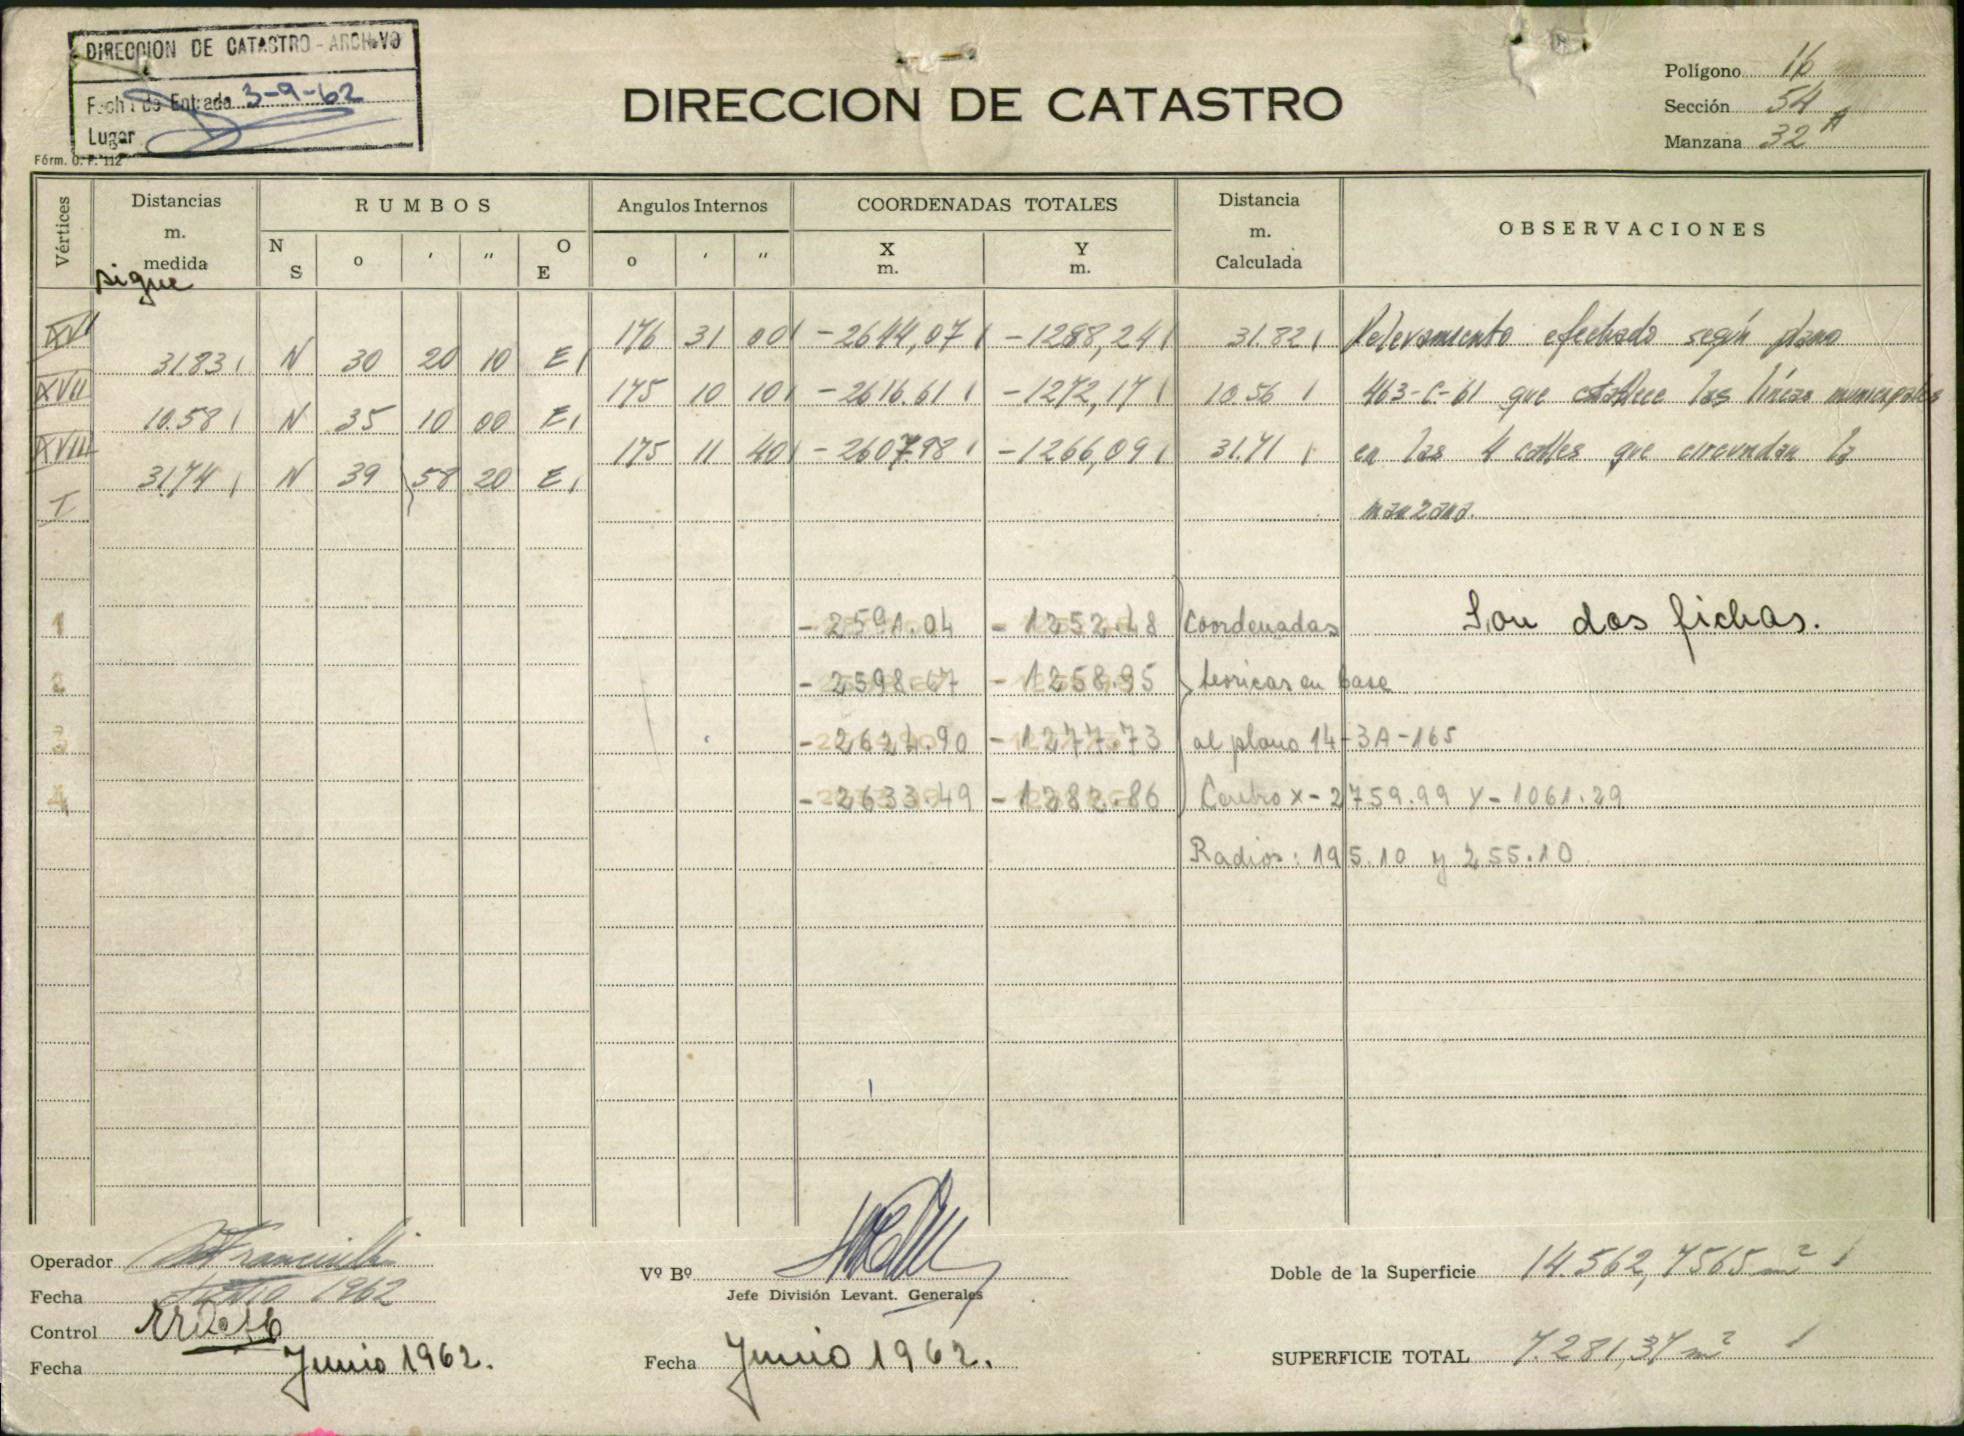 DIRECCION DE CATASTRO - ARCHIVO
Fecha de Entrada 3-9-62
Lugar
Fórm. O. P. 112
DIRECCION DE CATASTRO
Polígono 16
Sección 54
Manzana 32 A
Vértices
Distancias m. medida
RUMBOS
Angulos Internos
COORDENADAS TOTALES
Distancia m. Calculada
OBSERVACIONES
N S o ' " O E
o ' "
X m. Y m.
sigue
XVI 176 31 00 -2644,07 -1288,24 31.82 Relevamiento efectuado según plano
31.83 N 30 20 10 E
XVII 175 10 10 -2616.61 -1272,17 10.56 463-C-61 que establece las líneas municipales
10.58 N 35 10 00 E
XVIII 175 11 40 -2607.98 -1266,09 31.71 en las 4 calles que circundan la
31.74 N 39 58 20 E
I manzana.
1 -2591.04 -1252.48 Coordenadas Son dos fichas.
2 -2598.67 -1258.95 teoricas en base
3 -2624.90 -1277.73 al plano 14-3A-165
4 -2633.49 -1282.86 Centro X-2759.99 Y-1061.29
Radios: 195.10 y 255.10
Operador
Fecha 1962
Control
Fecha Junio 1962.
Vº Bº
Jefe División Levant. Generales
Fecha Junio 1962.
Doble de la Superficie 14.562,7565 m²
SUPERFICIE TOTAL 7.281,37 m²